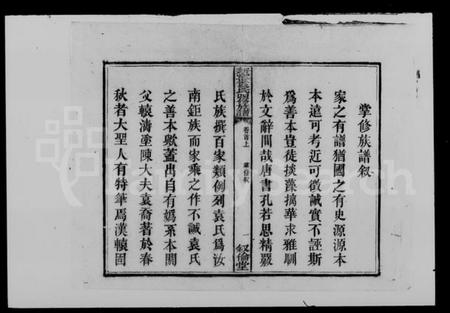 掌修族譜叙
家之有譜猶國之有史源源本
本遠可考近可徵誠實不誣斯
爲善本豈徒掞藻摛華求雅馴
於文辭間哉唐書孔若思精嚴
卷首上
一
叙倫堂
氏族撰百家類例列袁氏爲汝
南鉅族而家乘之作不誠袁氏
之善本歟蓋出自有嬀系本關
父轅濤塗陳大夫袁喬著於春
秋者大聖人有特筆焉漢轅固